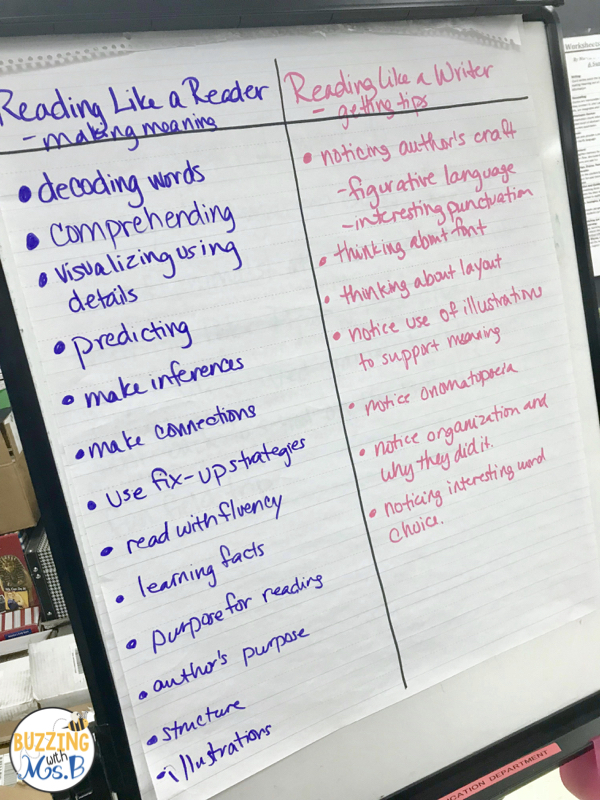 Reading Like a Reader
- making meaning
• decoding words
• comprehending
• visualizing using
details
• predicting
• make inferences
• make connections
• use fix-up strategies
• read with fluency
• learning facts
• purpose for reading
• author's purpose
• structure
• illustrations
Reading Like a Writer
- getting tips
• noticing author's craft
- figurative language
- interesting punctuation
• thinking about font
• thinking about layout
• notice use of illustrations
to support meaning
• notice onomatopoeia
• notice organization and
why they did it.
• noticing interesting word
choice.
BUZZING
with
Ms.B
EDUCATION DEPARTMENT